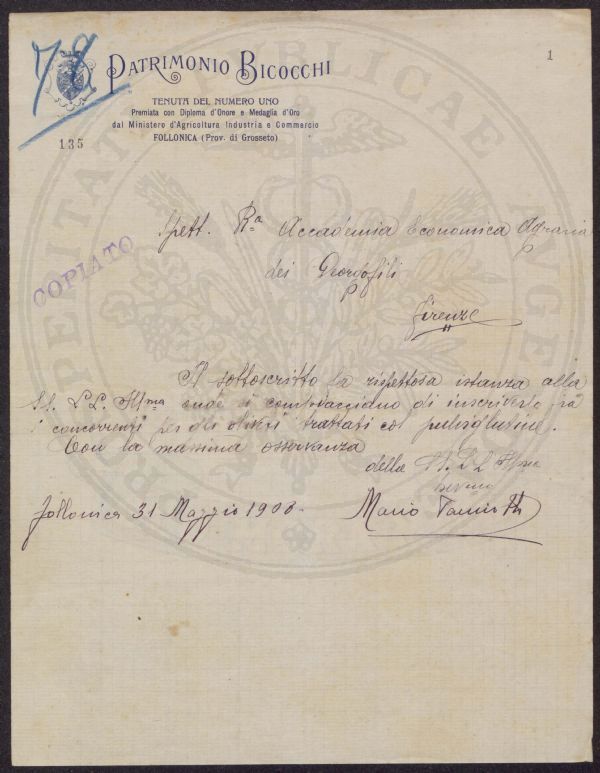 78
1
PATRIMONIO BICOCCHI
TENUTA DEL NUMERO UNO
Premiata con Diploma d'Onore e Medaglia d'Oro
dal Ministero d'Agricoltura Industria e Commercio
FOLLONICA (Prov. di Grosseto)
135
COPIATO
Spett. Ra Accademia Economica Agraria
dei Georgofili
Firenze
Il sottoscritto fa rispettosa istanza alla
SS. LL. Illma onde si compiacciano di inscriverlo fra
i concorrenti per gli olivi trattati col
Con la massima osservanza
della SS. LL Illma
devmo
Follonica 31 Maggio 1908.
Mario